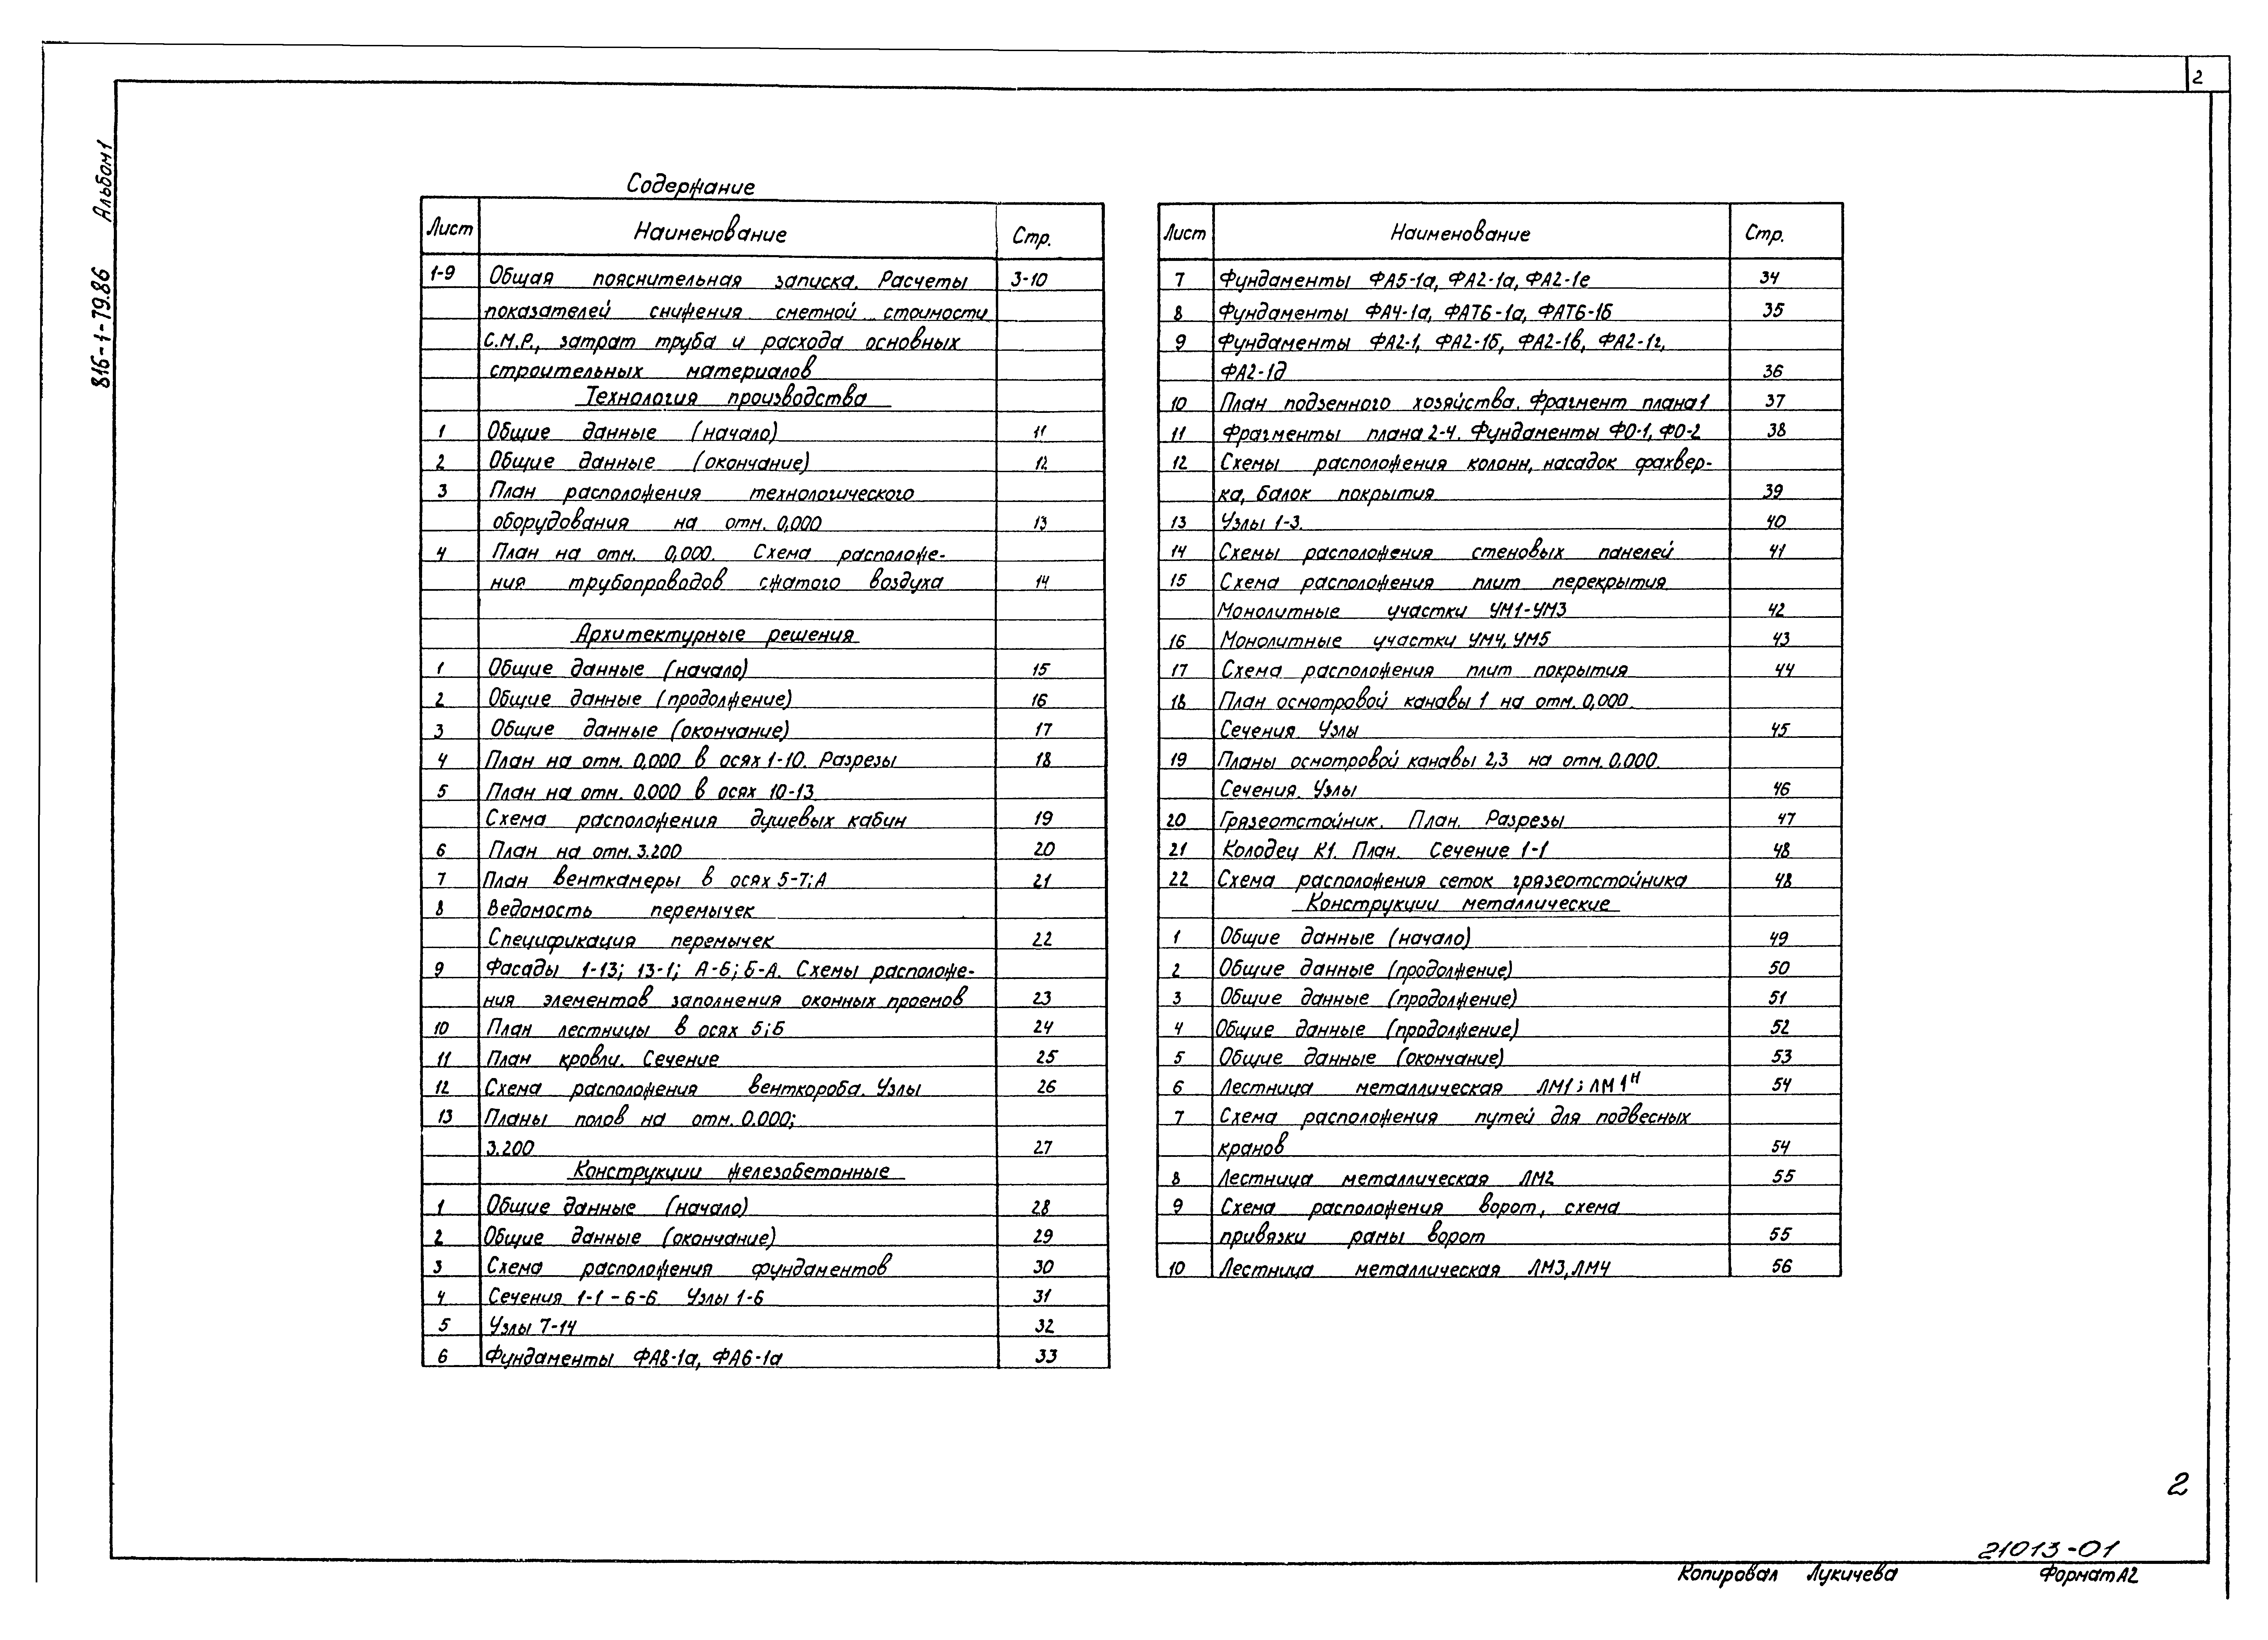 2
816-1-79.86 Альбом 1
Содержание
Лист Наименование Стр.
1-9 Общая пояснительная записка. Расчеты 3-10
показателей снижения сметной стоимости
С.М.Р., затрат труба и расхода основных
строительных материалов
Технология производства
1 Общие данные (начало) 11
2 Общие данные (окончание) 12
3 План расположения технологического
оборудования на отм. 0,000 13
4 План на отм. 0,000. Схема расположе-
ния трубопроводов сжатого воздуха 14
Архитектурные решения
1 Общие данные (начало) 15
2 Общие данные (продолжение) 16
3 Общие данные (окончание) 17
4 План на отм. 0,000 в осях 1-10. Разрезы 18
5 План на отм. 0.000 в осях 10-13
Схема расположения душевых кабин 19
6 План на отм. 3.200 20
7 План венткамеры в осях 5-7; А 21
8 Ведомость перемычек
Спецификация перемычек 22
9 Фасады 1-13; 13-1; А-Б; Б-А. Схемы расположе-
ния элементов заполнения оконных проемов 23
10 План лестницы в осях 5; Б 24
11 План кровли. Сечение 25
12 Схема расположения венткороба. Узлы 26
13 Планы полов на отм. 0.000;
3.200 27
Конструкции железобетонные
1 Общие данные (начало) 28
2 Общие данные (окончание) 29
3 Схема расположения фундаментов 30
4 Сечения 1-1 - 6-6 Узлы 1-6 31
5 Узлы 7-14 32
6 Фундаменты ФА8-1а, ФА6-1а 33
Лист Наименование Стр.
7 Фундаменты ФА5-1а, ФА2-1а, ФА2-1е 34
8 Фундаменты ФА4-1а, ФАТ6-1а, ФАТ6-1б 35
9 Фундаменты ФА2-1, ФА2-1б, ФА2-1в, ФА2-1г,
ФА2-1д 36
10 План подземного хозяйства. Фрагмент плана 1 37
11 Фрагменты плана 2-4. Фундаменты ФО-1, ФО-2 38
12 Схемы расположения колонн, насадок фахвер-
ка, балок покрытия 39
13 Узлы 1-3. 40
14 Схемы расположения стеновых панелей 41
15 Схема расположения плит перекрытия
Монолитные участки УМ1-УМ3 42
16 Монолитные участки УМ4, УМ5 43
17 Схема расположения плит покрытия 44
18 План осмотровой канавы 1 на отм. 0,000.
Сечения Узлы 45
19 Планы осмотровой канавы 2,3 на отм. 0,000.
Сечения. Узлы 46
20 Грязеотстойник. План. Разрезы 47
21 Колодец К1. План. Сечение 1-1 48
22 Схема расположения сеток грязеотстойника 48
Конструкции металлические
1 Общие данные (начало) 49
2 Общие данные (продолжение) 50
3 Общие данные (продолжение) 51
4 Общие данные (продолжение) 52
5 Общие данные (окончание) 53
6 Лестница металлическая ЛМ1; ЛМ1ᴴ 54
7 Схема расположения путей для подвесных
кранов 54
8 Лестница металлическая ЛМ2 55
9 Схема расположения ворот, схема
привязки рамы ворот 55
10 Лестница металлическая ЛМ3, ЛМ4 56
2
21013-01
Копировал Лукичева Формат А2